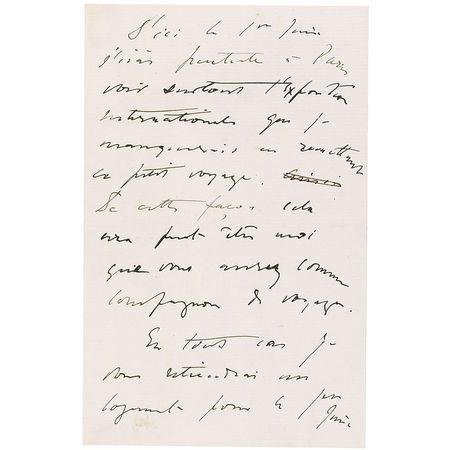 D'ici le 1er Juin
j'irai peut être à Paris
voir surtout l'Exposition
internationale que je
manquerais en remettant
ce petit voyage.
De cette façon cela
sera peut être moi
que vous aurez comme
compagnon de voyage.
En tout cas je
vous retiendrai un
logement pour le 1er
Juin